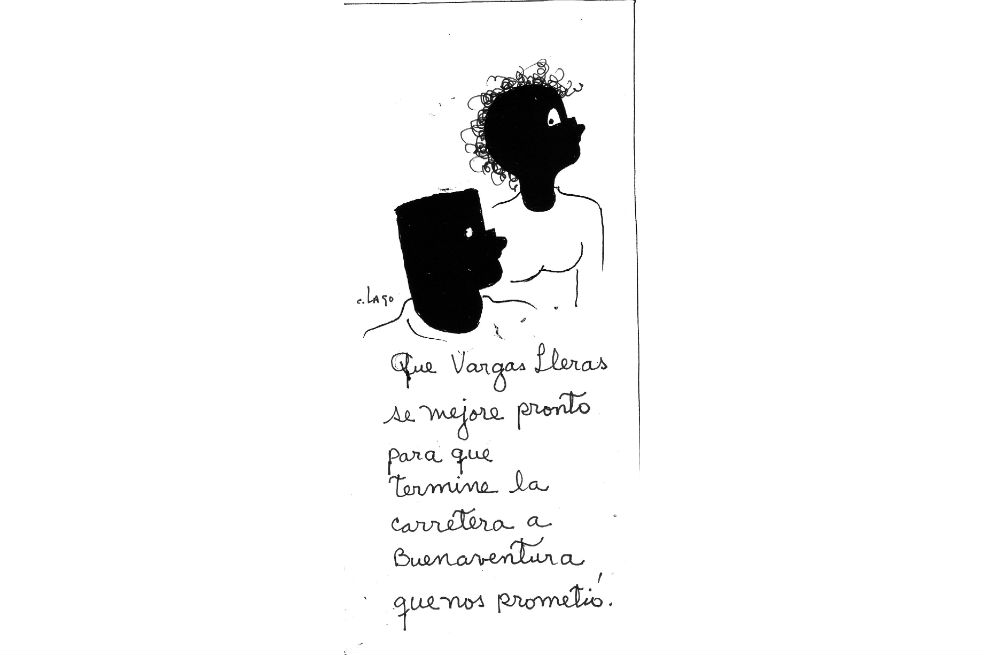 c. Lago
Que Vargas Lleras
se mejore pronto
para que
termine la
carretera a
Buenaventura
que nos prometió.